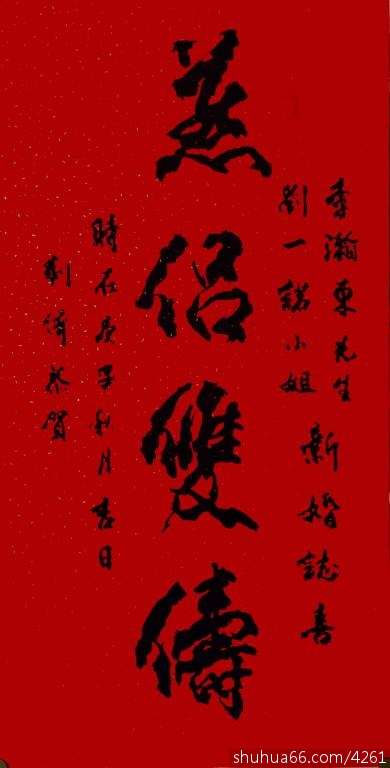 季瀚東先生
劉一諾小姐
新婚誌喜
燕侣雙儔
時在庚子秋月吉日
劉倚恭賀
shuhua66.com/4261